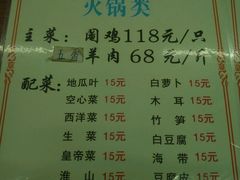 火锅类
主菜：阉鸡118元/只
羊肉 68 元/斤
配菜：地瓜叶 15元 白萝卜 15元
空心菜 15元 木耳 15元
西洋菜 15元 竹笋 15元
生菜 15元 白豆腐 15元
皇帝菜 15元 海带 15元
淮山 15元 豆腐皮 15元